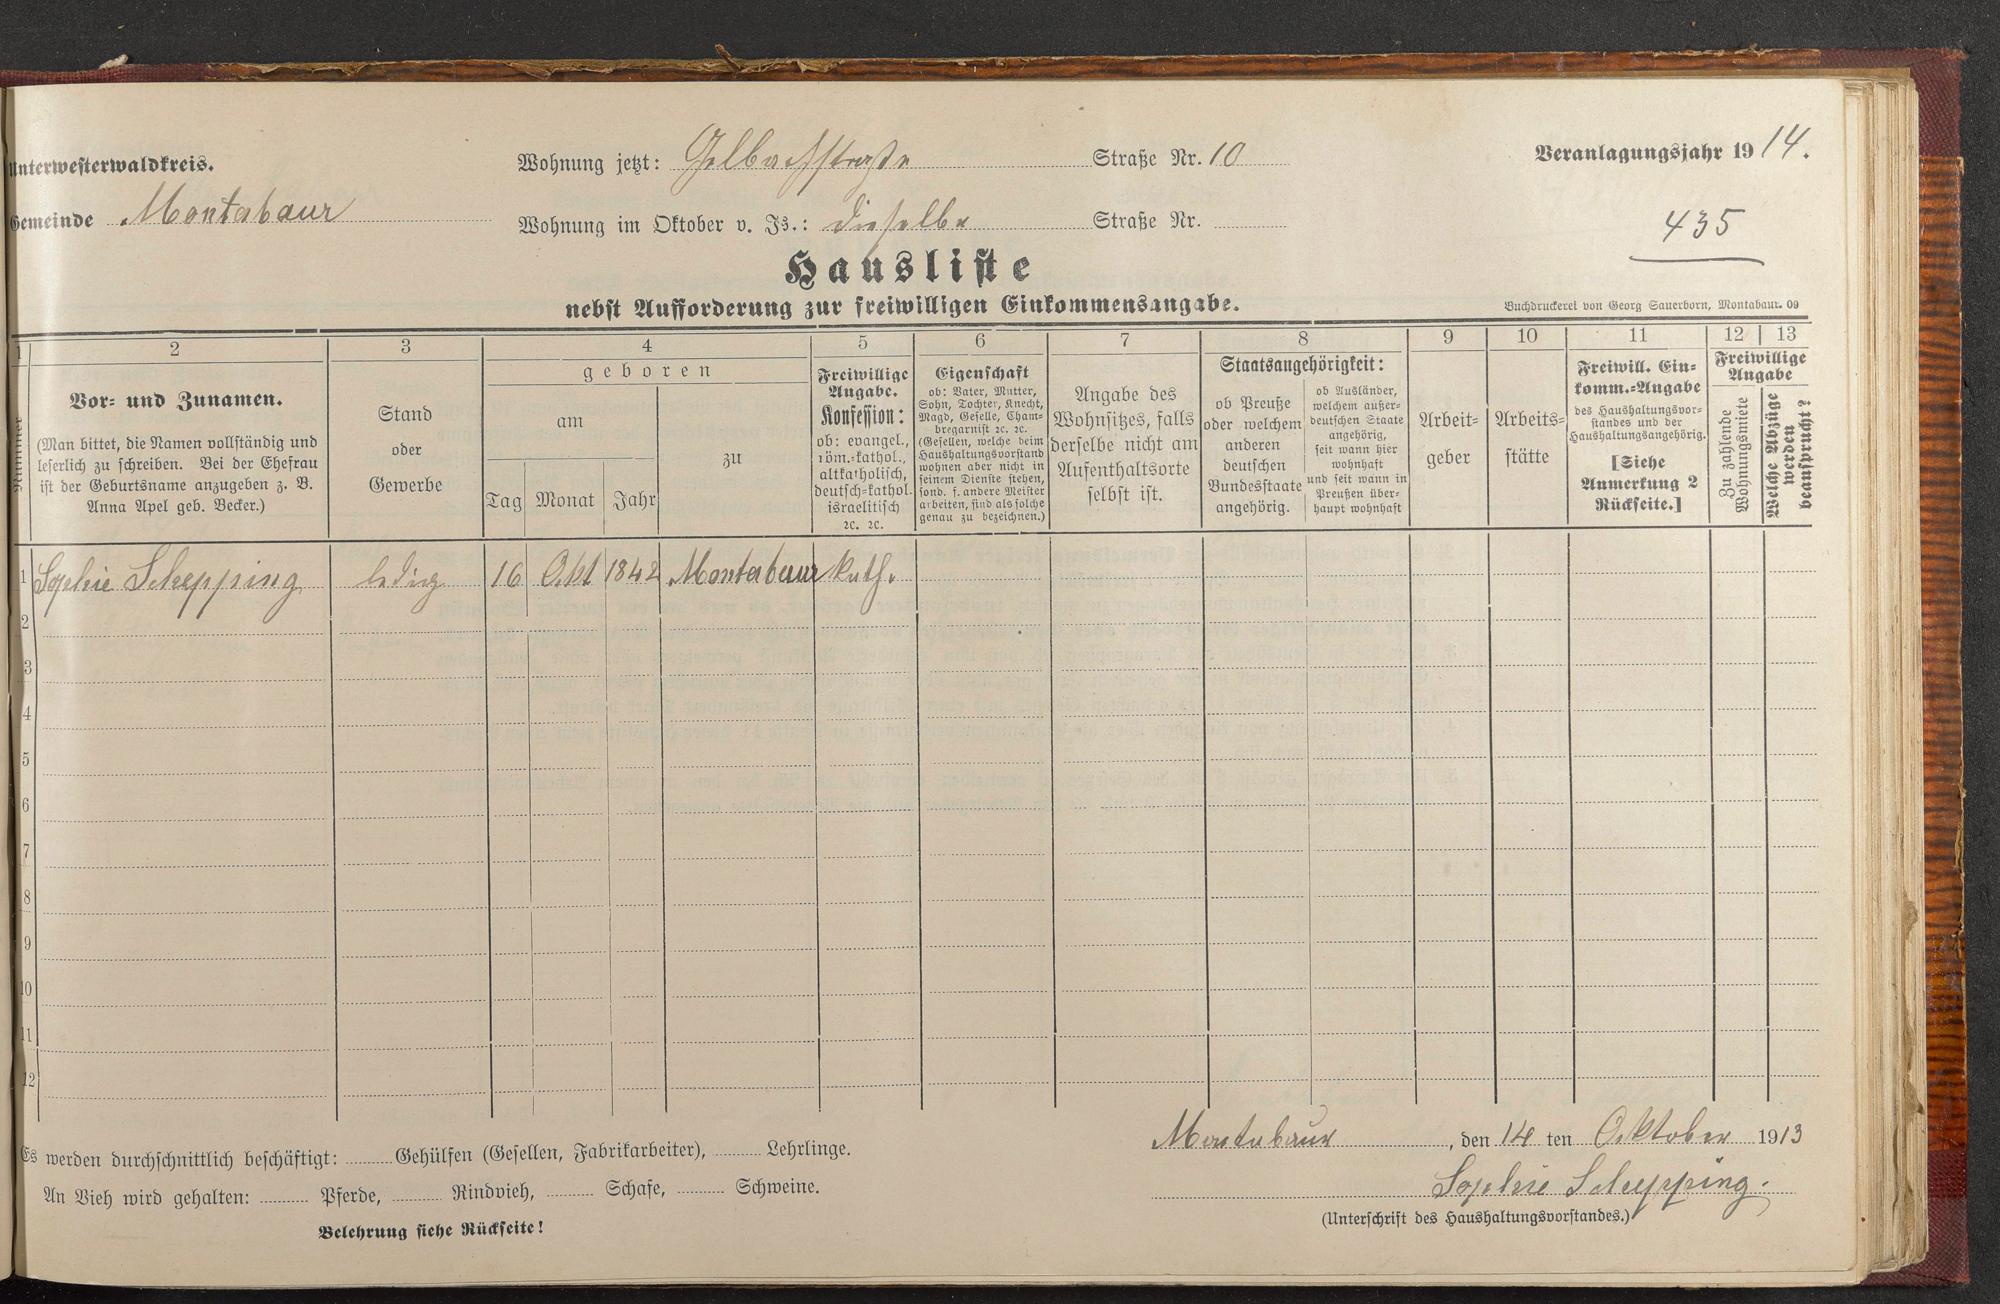 Unterwesterwaldkreis.
Gemeinde Montabaur
Wohnung jetzt: Gelbachstraße Straße Nr. 10
Wohnung im Oktober v. Js.: dieselbe Straße Nr.
Veranlagungsjahr 1914.
435
Hausliste
nebst Aufforderung zur freiwilligen Einkommensangabe.
Buchdruckerei von Georg Sauerborn, Montabaur. 09
1 2 3 4 5 6 7 8 9 10 11 12 13
Nummer
Vor- und Zunamen.
(Man bittet, die Namen vollständig und
leserlich zu schreiben. Bei der Ehefrau
ist der Geburtsname anzugeben z. B.
Anna Apel geb. Becker.)
Stand
oder
Gewerbe
geboren
am
Tag Monat Jahr
zu
Freiwillige
Angabe.
Konfession:
ob: evangel.,
röm.-kathol.,
altkatholisch,
deutsch-kathol.
israelitisch
2c. 2c.
Eigenschaft
ob: Vater, Mutter,
Sohn, Tochter, Knecht,
Magd, Geselle, Cham-
bregarnist 2c. 2c.
(Gesellen, welche beim
Haushaltungsvorstand
wohnen aber nicht in
seinem Dienste stehen,
sond. f. andere Meister
arbeiten, sind als solche
genau zu bezeichnen.)
Angabe des
Wohnsitzes, falls
derselbe nicht am
Aufenthaltsorte
selbst ist.
Staatsangehörigkeit:
ob Preuße
oder welchem
anderen
deutschen
Bundesstaate
angehörig.
ob Ausländer,
welchem außer-
deutschen Staate
angehörig,
seit wann hier
wohnhaft
und seit wann in
Preußen über-
haupt wohnhaft
Arbeit-
geber
Arbeits-
stätte
Freiwill. Ein-
komm.-Angabe
des Haushaltungsvor-
standes und der
Haushaltungsangehörig.
[Siehe
Anmerkung 2
Rückseite.]
Freiwillige
Angabe
Zu zahlende
Wohnungsmiete
Welche Abzüge
werden
beansprucht?
1 Sophie Schepping ledig 16 Okt 1842 Montabaur kath.
2
3
4
5
6
7
8
9
10
11
12
Es werden durchschnittlich beschäftigt: Gehülfen (Gesellen, Fabrikarbeiter), Lehrlinge.
An Vieh wird gehalten: Pferde, Rindvieh, Schafe, Schweine.
Belehrung siehe Rückseite!
Montabaur, den 14 ten Oktober 1913
Sophie Schepping.
(Unterschrift des Haushaltungsvorstandes.)